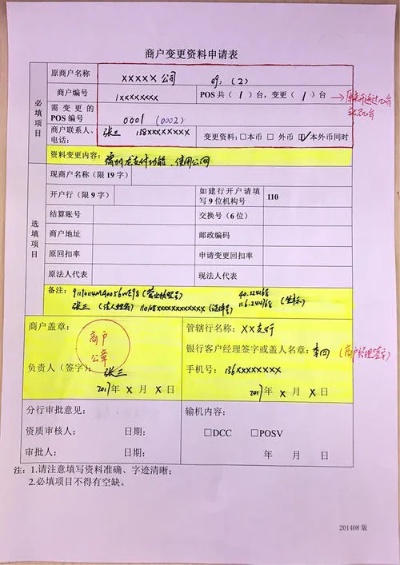 商户变更资料申请表
必填项目
原商户名称 XXXXX 公司
商户编号 1XXXXXXXX POS共(1)台，变更(1)台
需变更的POS编号 0001 (0002)
商户联系人、电话: 张三 138XXXXXXXX 变更资料:□本币 □外币 ☑本外币同时
资料变更内容:
选填项目
现商户名称（限19字）
开户行（限9字） 如建行开户请填写9位机构号 110
结算账号 交换号（6位）
商户地址 邮政编码
原回扣率 申请变更回扣率
原法人代表 现法人代表
备注:
张三
商户盖章: 管辖行名称: XX支行
商户公章
银行客户经理签字或盖人名章: 李四
负责人（签字）: 张三 手机号: 136XXXXXXXX
2017年X月X日 2017年X月X日
分行审批意见: 输机内容:
资质审核人: 日期: □DCC □POSV
审批人: 日期: 年 月 日
注: 1.请注意填写资料准确、字迹清晰;
2.必填项目不得有空缺。
201408版